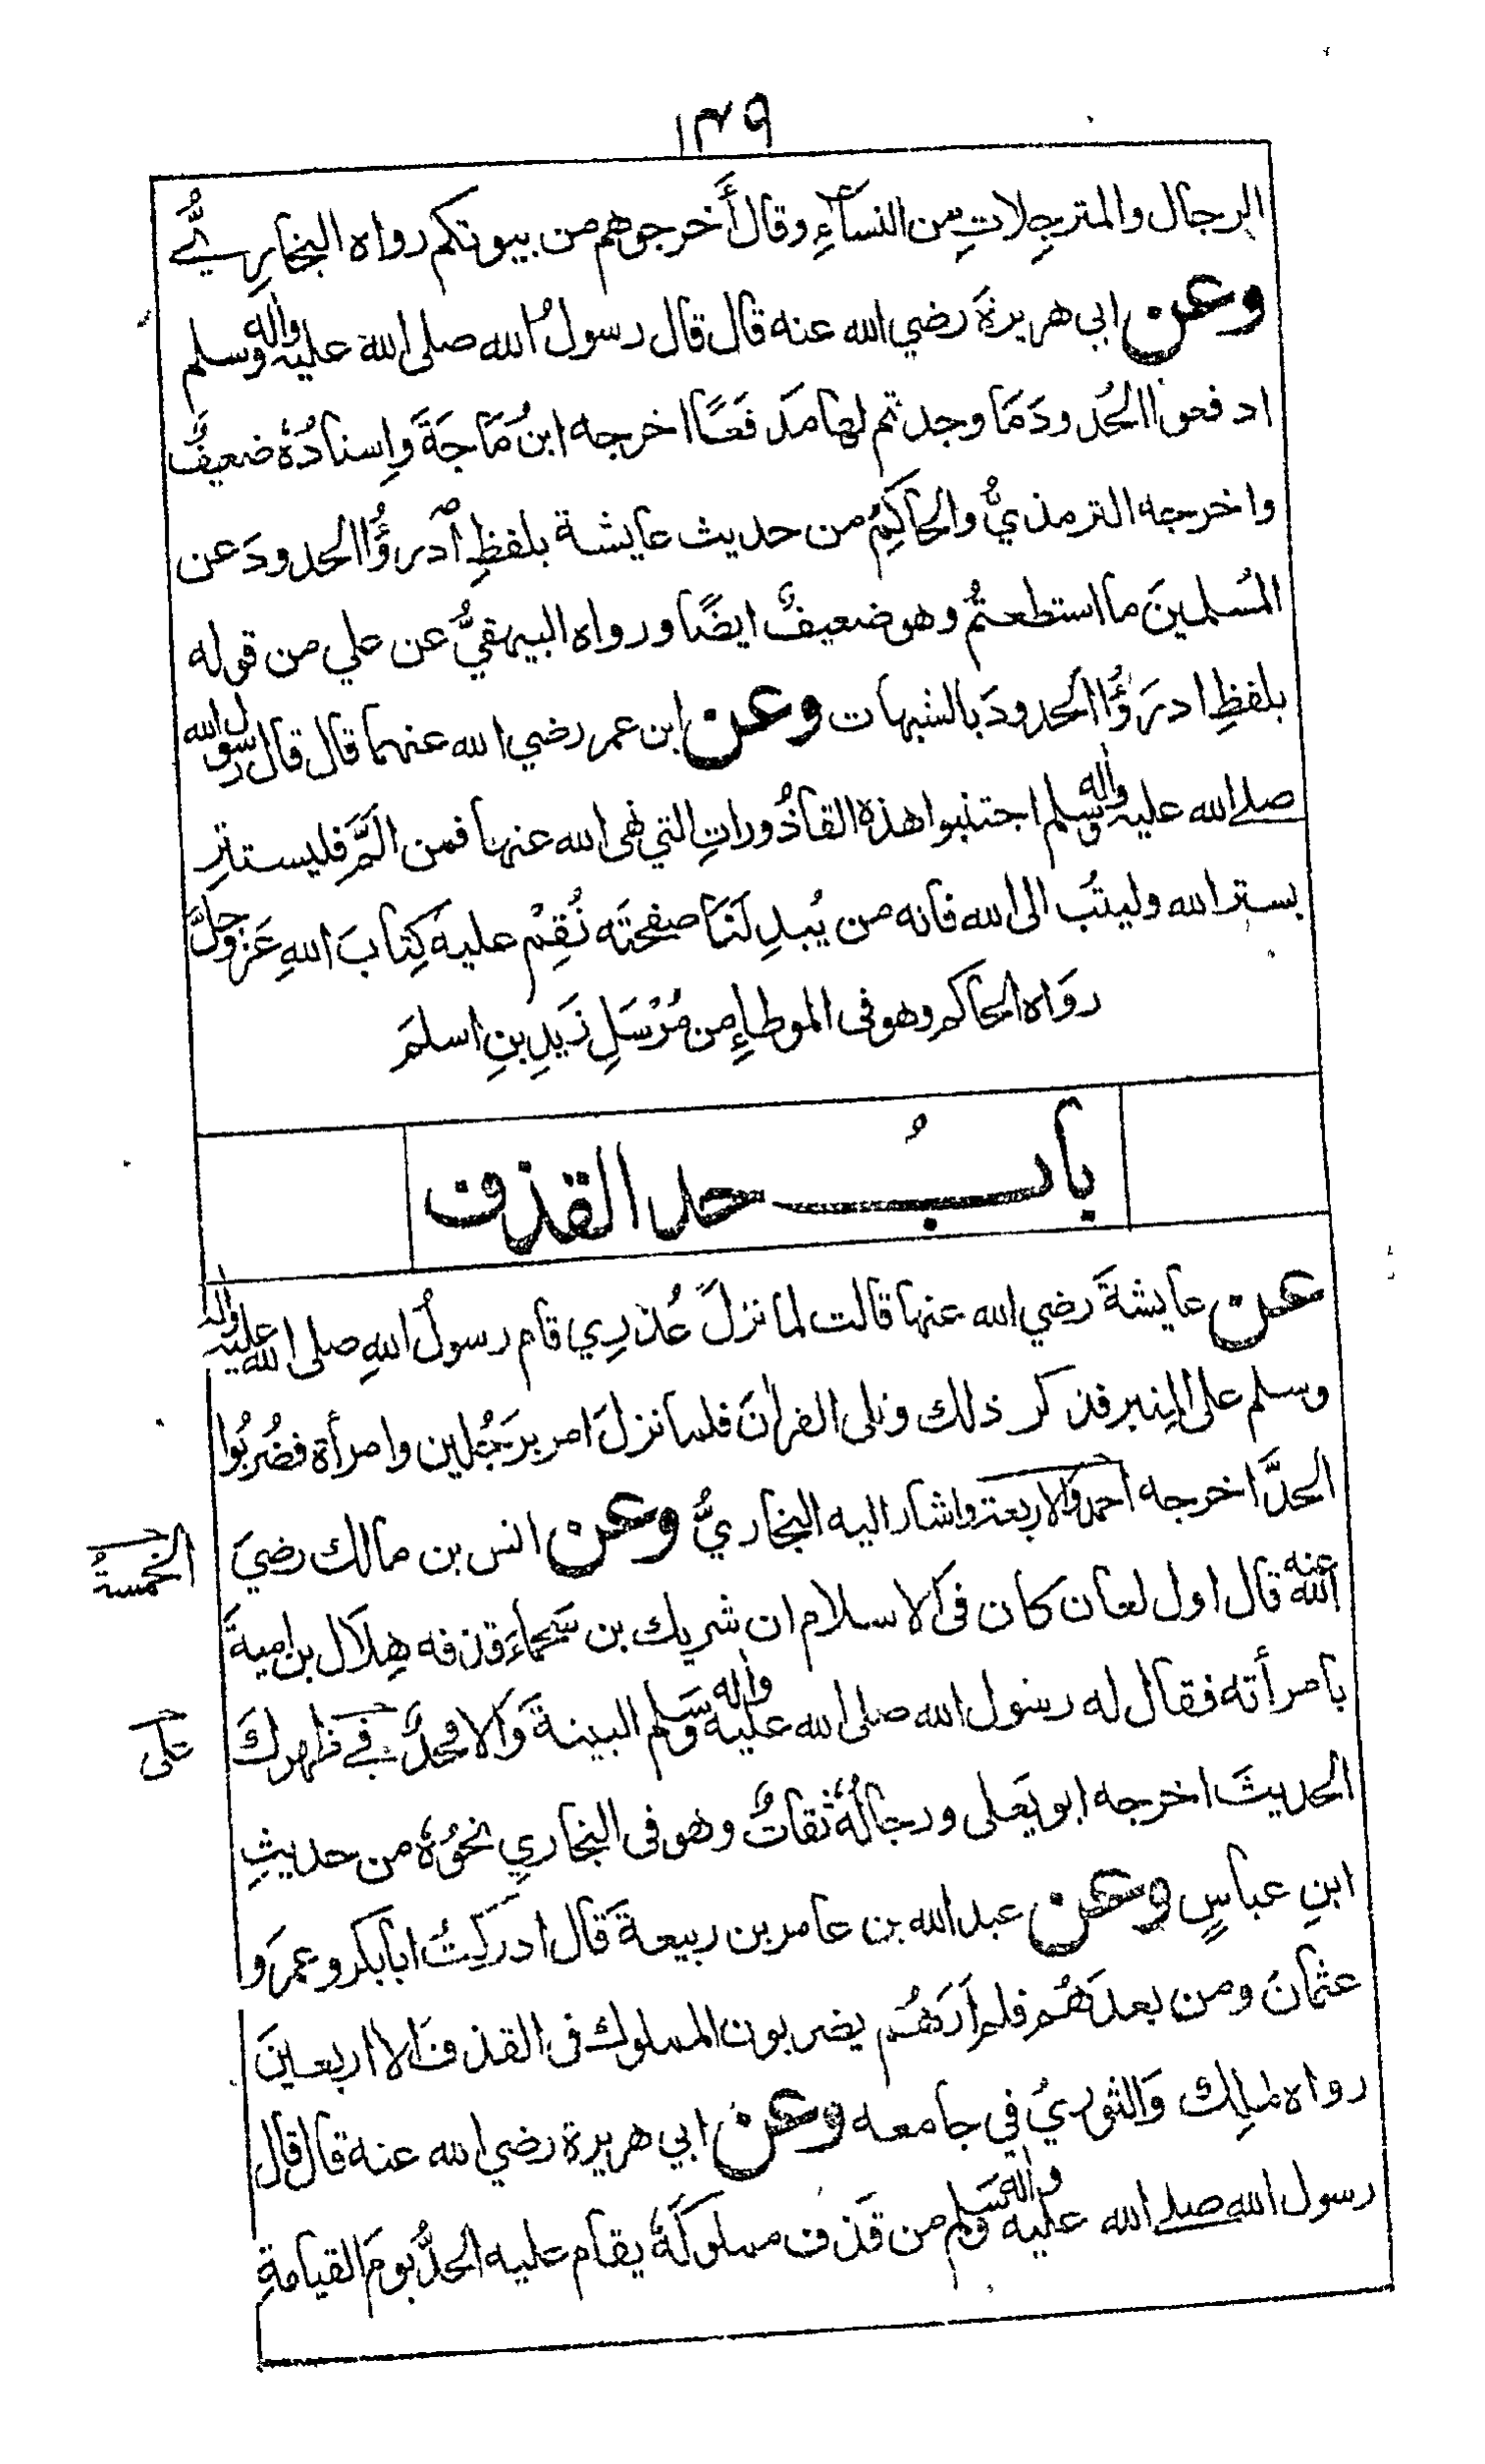 ١٣٩
الرجال والمترجِلاتِ من النسآءِ وقال أَخرجوهم من بيوتكم رواه البخاريُّ
وعن ابي هريرةَ رضي الله عنه قال قال رسولُ الله صلى الله عليه واله وسلم
ادفعوا الحُدودَ مَا وجدتم لها مَدفَعًا اخرجه ابنُ مَاجَةَ وإسنادُهٗ ضعيفٌ
واخرجه الترمذيُّ والحاكِمُ من حديث عايشة بلفظِ ادرؤُا الحدودَ عن
المُسلمينَ ما استطعتُم وهو ضعيفٌ ايضًا ورواه البيهقيُّ عن علي من قوله
بلفظِ ادرَؤُا الحدودَ بالشبهات وعن ابن عمر رضي الله عنهما قال قال رسول الله
صلے الله عليه واله وسلم اجتنبوا هذه القاذُوراتِ التي نهى الله عنها فمن المَّ فليستتِر
بستر الله وليتُب الى الله فانه من يُبدِ لَنَا صفحتَه نُقِمْ عليه كِتابَ اللهِ عَزوجلَّ
روَاه الحاكم وهو في الموطاءِ من مُرْسَلِ زَيدِ بنِ اسلمَ
بابُ حد القذف
عن عايشةَ رضي الله عنها قالت لما نزلَ عُذرِي قام رسولُ اللهِ صلى الله عليه واله
وسلم على المِنبر فذكر ذلك وتلى القرانَ فلما نزلَ امر برَجُلين وامرأة فضُربُوا
الحدَّ اخرجه احمد والاربعة واشار اليه البخاريُّ وعن انس بن مالك رضيَ
الخمسةُ
الله عنه قال اول لعان كان في الاسلام ان شريك بن سَحماءَ قذفه هِلَال بن اميةَ
بامرأته فقال له رسول الله صلى الله عليه واله وسَلم البينةَ وَالا فحدٌّ في ظهرك
على
الحديثَ اخرجه ابو يَعلى ورجالُهٗ ثقاتٌ وهو في البخاريِ نحوُهٗ من حديثِ
ابنِ عباسٍ وعن عبد الله بن عامر بن ربيعةَ قال ادركتُ ابا بكر وعمرَ و
عثمانَ ومن بعدَهُم فلم اَرَهُم يضربون المملوك في القذف الا اربعينَ
رواه مٰلِك وَالثوريُ في جامعه وعن ابي هريرة رضي الله عنه قال قال
رسول الله صلے الله عليه واله وسَلم من قَذف مملوكَهٗ يقام عليه الحدُّ يومَ القيامةِ